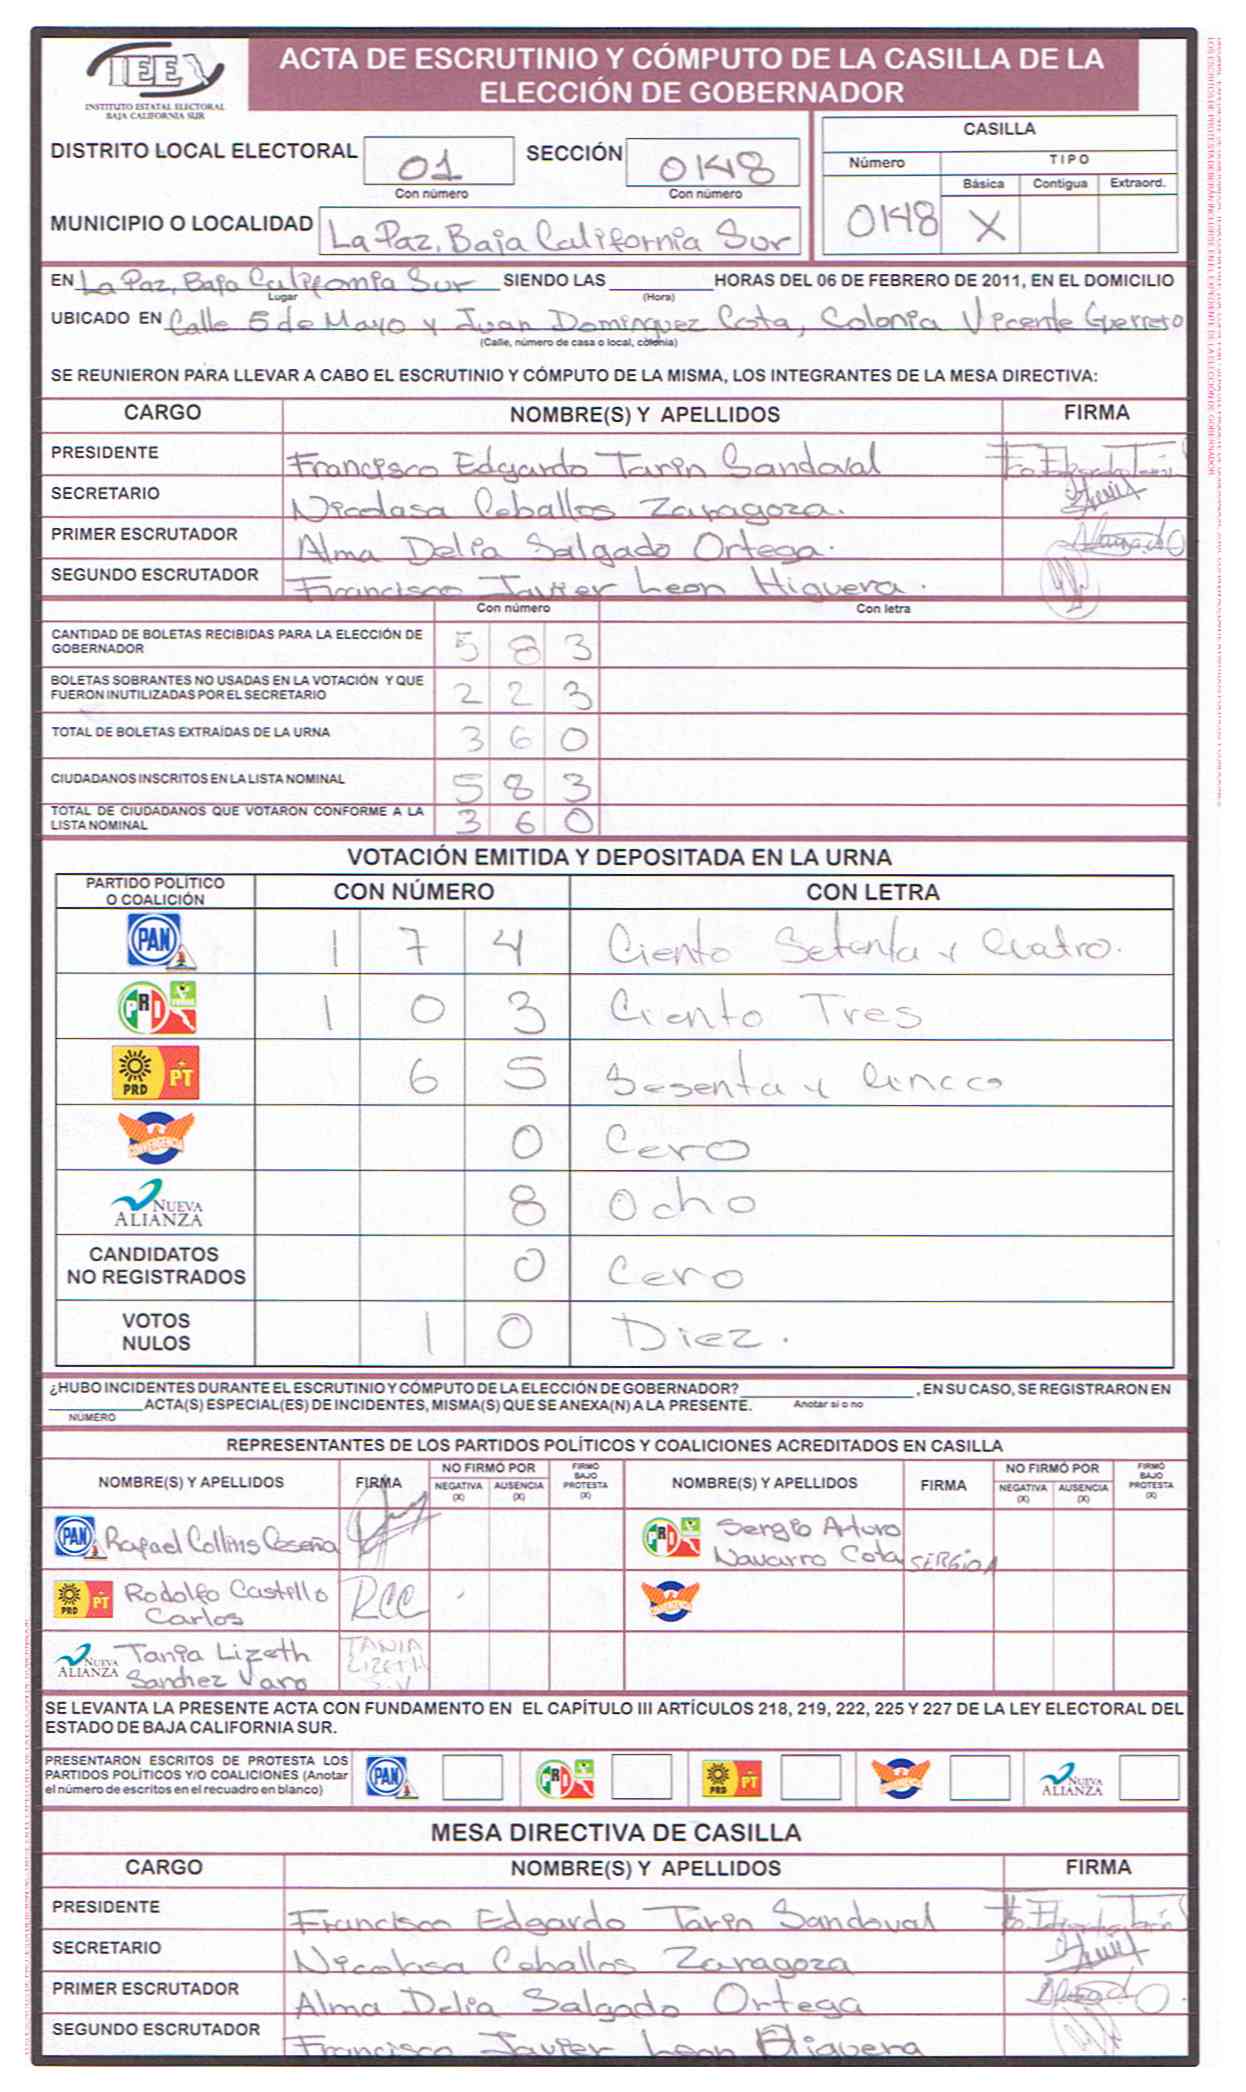 ACTA DE ESCRUTINIO Y CÓMPUTO DE LA CASILLA DE LA
ELECCIÓN DE GOBERNADOR
INSTITUTO ESTATAL ELECTORAL
BAJA CALIFORNIA SUR
DISTRITO LOCAL ELECTORAL 01 SECCIÓN 0148
Con número Con número
MUNICIPIO O LOCALIDAD La Paz, Baja California Sur
CASILLA
Número TIPO
Básica Contigua Extraord.
0148 X
EN La Paz, Baja California Sur SIENDO LAS HORAS DEL 06 DE FEBRERO DE 2011, EN EL DOMICILIO
Lugar (Hora)
UBICADO EN Calle 5 de Mayo y Juan Dominguez Cota, Colonia Vicente Guerrero
(Calle, número de casa o local, colonia)
SE REUNIERON PARA LLEVAR A CABO EL ESCRUTINIO Y CÓMPUTO DE LA MISMA, LOS INTEGRANTES DE LA MESA DIRECTIVA:
CARGO NOMBRE(S) Y APELLIDOS FIRMA
PRESIDENTE Francisco Edgardo Tarin Sandoval
SECRETARIO Nicolasa Ceballos Zaragoza.
PRIMER ESCRUTADOR Alma Delia Salgado Ortega.
SEGUNDO ESCRUTADOR Francisco Javier Leon Higuera.
Con número Con letra
CANTIDAD DE BOLETAS RECIBIDAS PARA LA ELECCIÓN DE
GOBERNADOR 5 8 3
BOLETAS SOBRANTES NO USADAS EN LA VOTACIÓN Y QUE
FUERON INUTILIZADAS POR EL SECRETARIO 2 2 3
TOTAL DE BOLETAS EXTRAÍDAS DE LA URNA 3 6 0
CIUDADANOS INSCRITOS EN LA LISTA NOMINAL 5 8 3
TOTAL DE CIUDADANOS QUE VOTARON CONFORME A LA
LISTA NOMINAL 3 6 0
VOTACIÓN EMITIDA Y DEPOSITADA EN LA URNA
PARTIDO POLÍTICO
O COALICIÓN CON NÚMERO CON LETRA
PAN 1 7 4 Ciento Setenta y Cuatro.
PRI 1 0 3 Ciento Tres
PRD PT 6 5 Sesenta y Cinco
CONVERGENCIA 0 Cero
NUEVA
ALIANZA 8 Ocho
CANDIDATOS
NO REGISTRADOS 0 Cero
VOTOS
NULOS 1 0 Diez.
¿HUBO INCIDENTES DURANTE EL ESCRUTINIO Y CÓMPUTO DE LA ELECCIÓN DE GOBERNADOR? , EN SU CASO, SE REGISTRARON EN
ACTA(S) ESPECIAL(ES) DE INCIDENTES, MISMA(S) QUE SE ANEXA(N) A LA PRESENTE. Anotar si o no
NÚMERO
REPRESENTANTES DE LOS PARTIDOS POLÍTICOS Y COALICIONES ACREDITADOS EN CASILLA
NOMBRE(S) Y APELLIDOS FIRMA NO FIRMÓ POR NEGATIVA (X) AUSENCIA (X) FIRMÓ BAJO PROTESTA (X) NOMBRE(S) Y APELLIDOS FIRMA NO FIRMÓ POR NEGATIVA (X) AUSENCIA (X) FIRMÓ BAJO PROTESTA (X)
PAN Rafael Collins Ceseña PRI Sergio Arturo
Navarro Cota SERGIO A
PRD PT Rodolfo Castillo RCC CONVERGENCIA
Carlos
NUEVA ALIANZA Tania Lizeth TANIA
Sanchez Varo LIZETH
S.V
SE LEVANTA LA PRESENTE ACTA CON FUNDAMENTO EN EL CAPÍTULO III ARTÍCULOS 218, 219, 222, 225 Y 227 DE LA LEY ELECTORAL DEL
ESTADO DE BAJA CALIFORNIA SUR.
PRESENTARON ESCRITOS DE PROTESTA LOS
PARTIDOS POLÍTICOS Y/O COALICIONES (Anotar
el número de escritos en el recuadro en blanco) PAN PRI PRD PT CONVERGENCIA NUEVA ALIANZA
MESA DIRECTIVA DE CASILLA
CARGO NOMBRE(S) Y APELLIDOS FIRMA
PRESIDENTE Francisco Edgardo Tarin Sandoval
SECRETARIO Nicolasa Ceballos Zaragoza
PRIMER ESCRUTADOR Alma Delia Salgado Ortega
SEGUNDO ESCRUTADOR Francisco Javier Leon Higuera